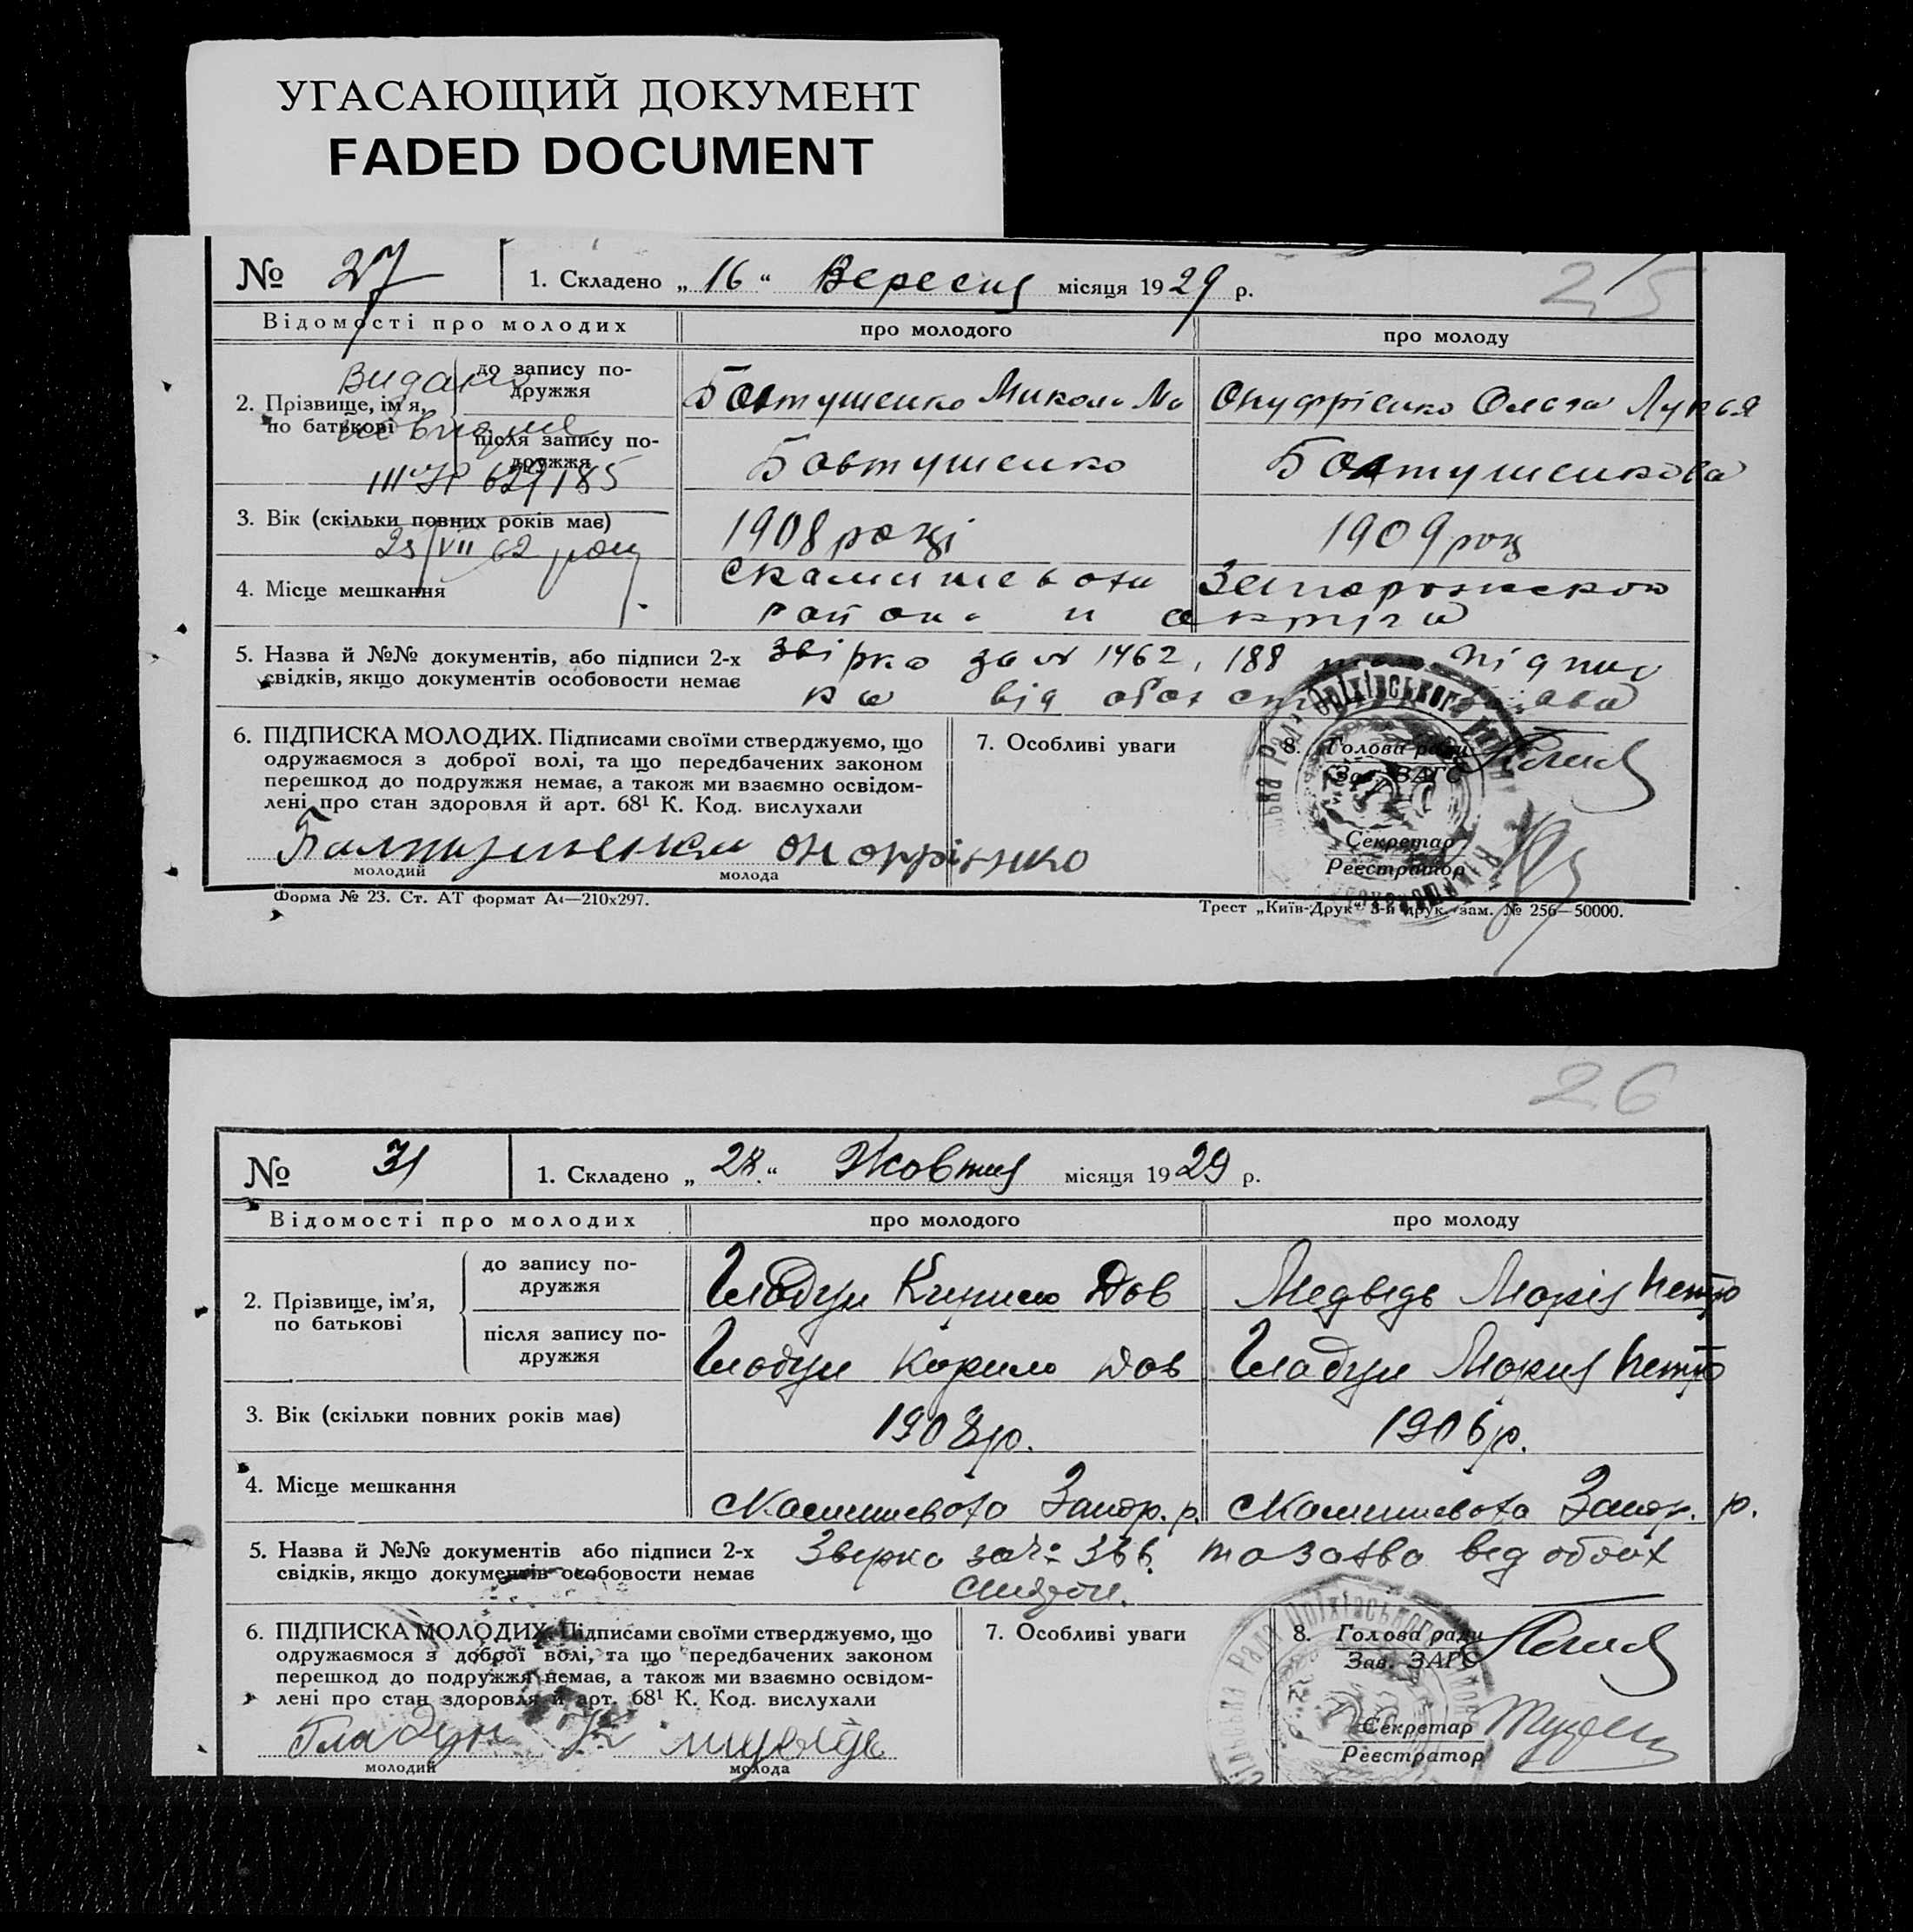 УГАСАЮЩИЙ ДОКУМЕНТ
FADED DOCUMENT
25
№ 27 1. Складено „ 16 “ Вересня місяця 1929 р.
Відомості про молодих про молодого про молоду
2. Прізвище, ім'я, по батькові
до запису подружжя Бовтушенко Микола Ма Онуфрієнко Ольга Лукья
після запису подружжя Бовтушенко Бовтушенкова
Видано
629185
3. Вік (скільки повних років має) 1908 році 1909 року
VII 62 року
4. Місце мешкання Запорожского
района и округа
5. Назва й №№ документів, або підписи 2-х звірка за № 1462, 188 підпис
свідків, якщо документів особовости немає ка від обох
6. ПІДПИСКА МОЛОДИХ. Підписами своїми стверджуємо, що
одружаємося з доброї волі, та що передбачених законом
перешкод до подружжя немає, а також ми взаємно освідом-
лені про стан здоровля й арт. 68¹ К. Код. вислухали
молодий молода
7. Особливі уваги
8. Голова ради
Зав. ЗАГС
Секретар
Реєстратор
Рада Оріхівського
Форма № 23. Ст. АТ формат А4—210х297. Трест „Київ-Друк“ 3-й друк. зам. № 256—50000.
26
№ 31 1. Складено „ 28 “ Жовтня місяця 1929 р.
Відомості про молодих про молодого про молоду
2. Прізвище, ім'я, по батькові
до запису подружжя Гладун Кирило Дов Медведь Марія Петро
після запису подружжя Гладун Кирило Дов Гладун Мария Петро
3. Вік (скільки повних років має) 1908 р. 1906 р.
4. Місце мешкання Запор. р. Запор. р.
5. Назва й №№ документів або підписи 2-х Зверка за та заява вед обоих
свідків, якщо документів особовости немає
6. ПІДПИСКА МОЛОДИХ. Підписами своїми стверджуємо, що
одружаємося з доброї волі, та що передбачених законом
перешкод до подружжя немає, а також ми взаємно освідом-
лені про стан здоровля й арт. 68¹ К. Код. вислухали
Гладун К
молодий молода
7. Особливі уваги
8. Голова ради
Зав. ЗАГС
Секретар
Реєстратор
Сільська Рада Оріхівського